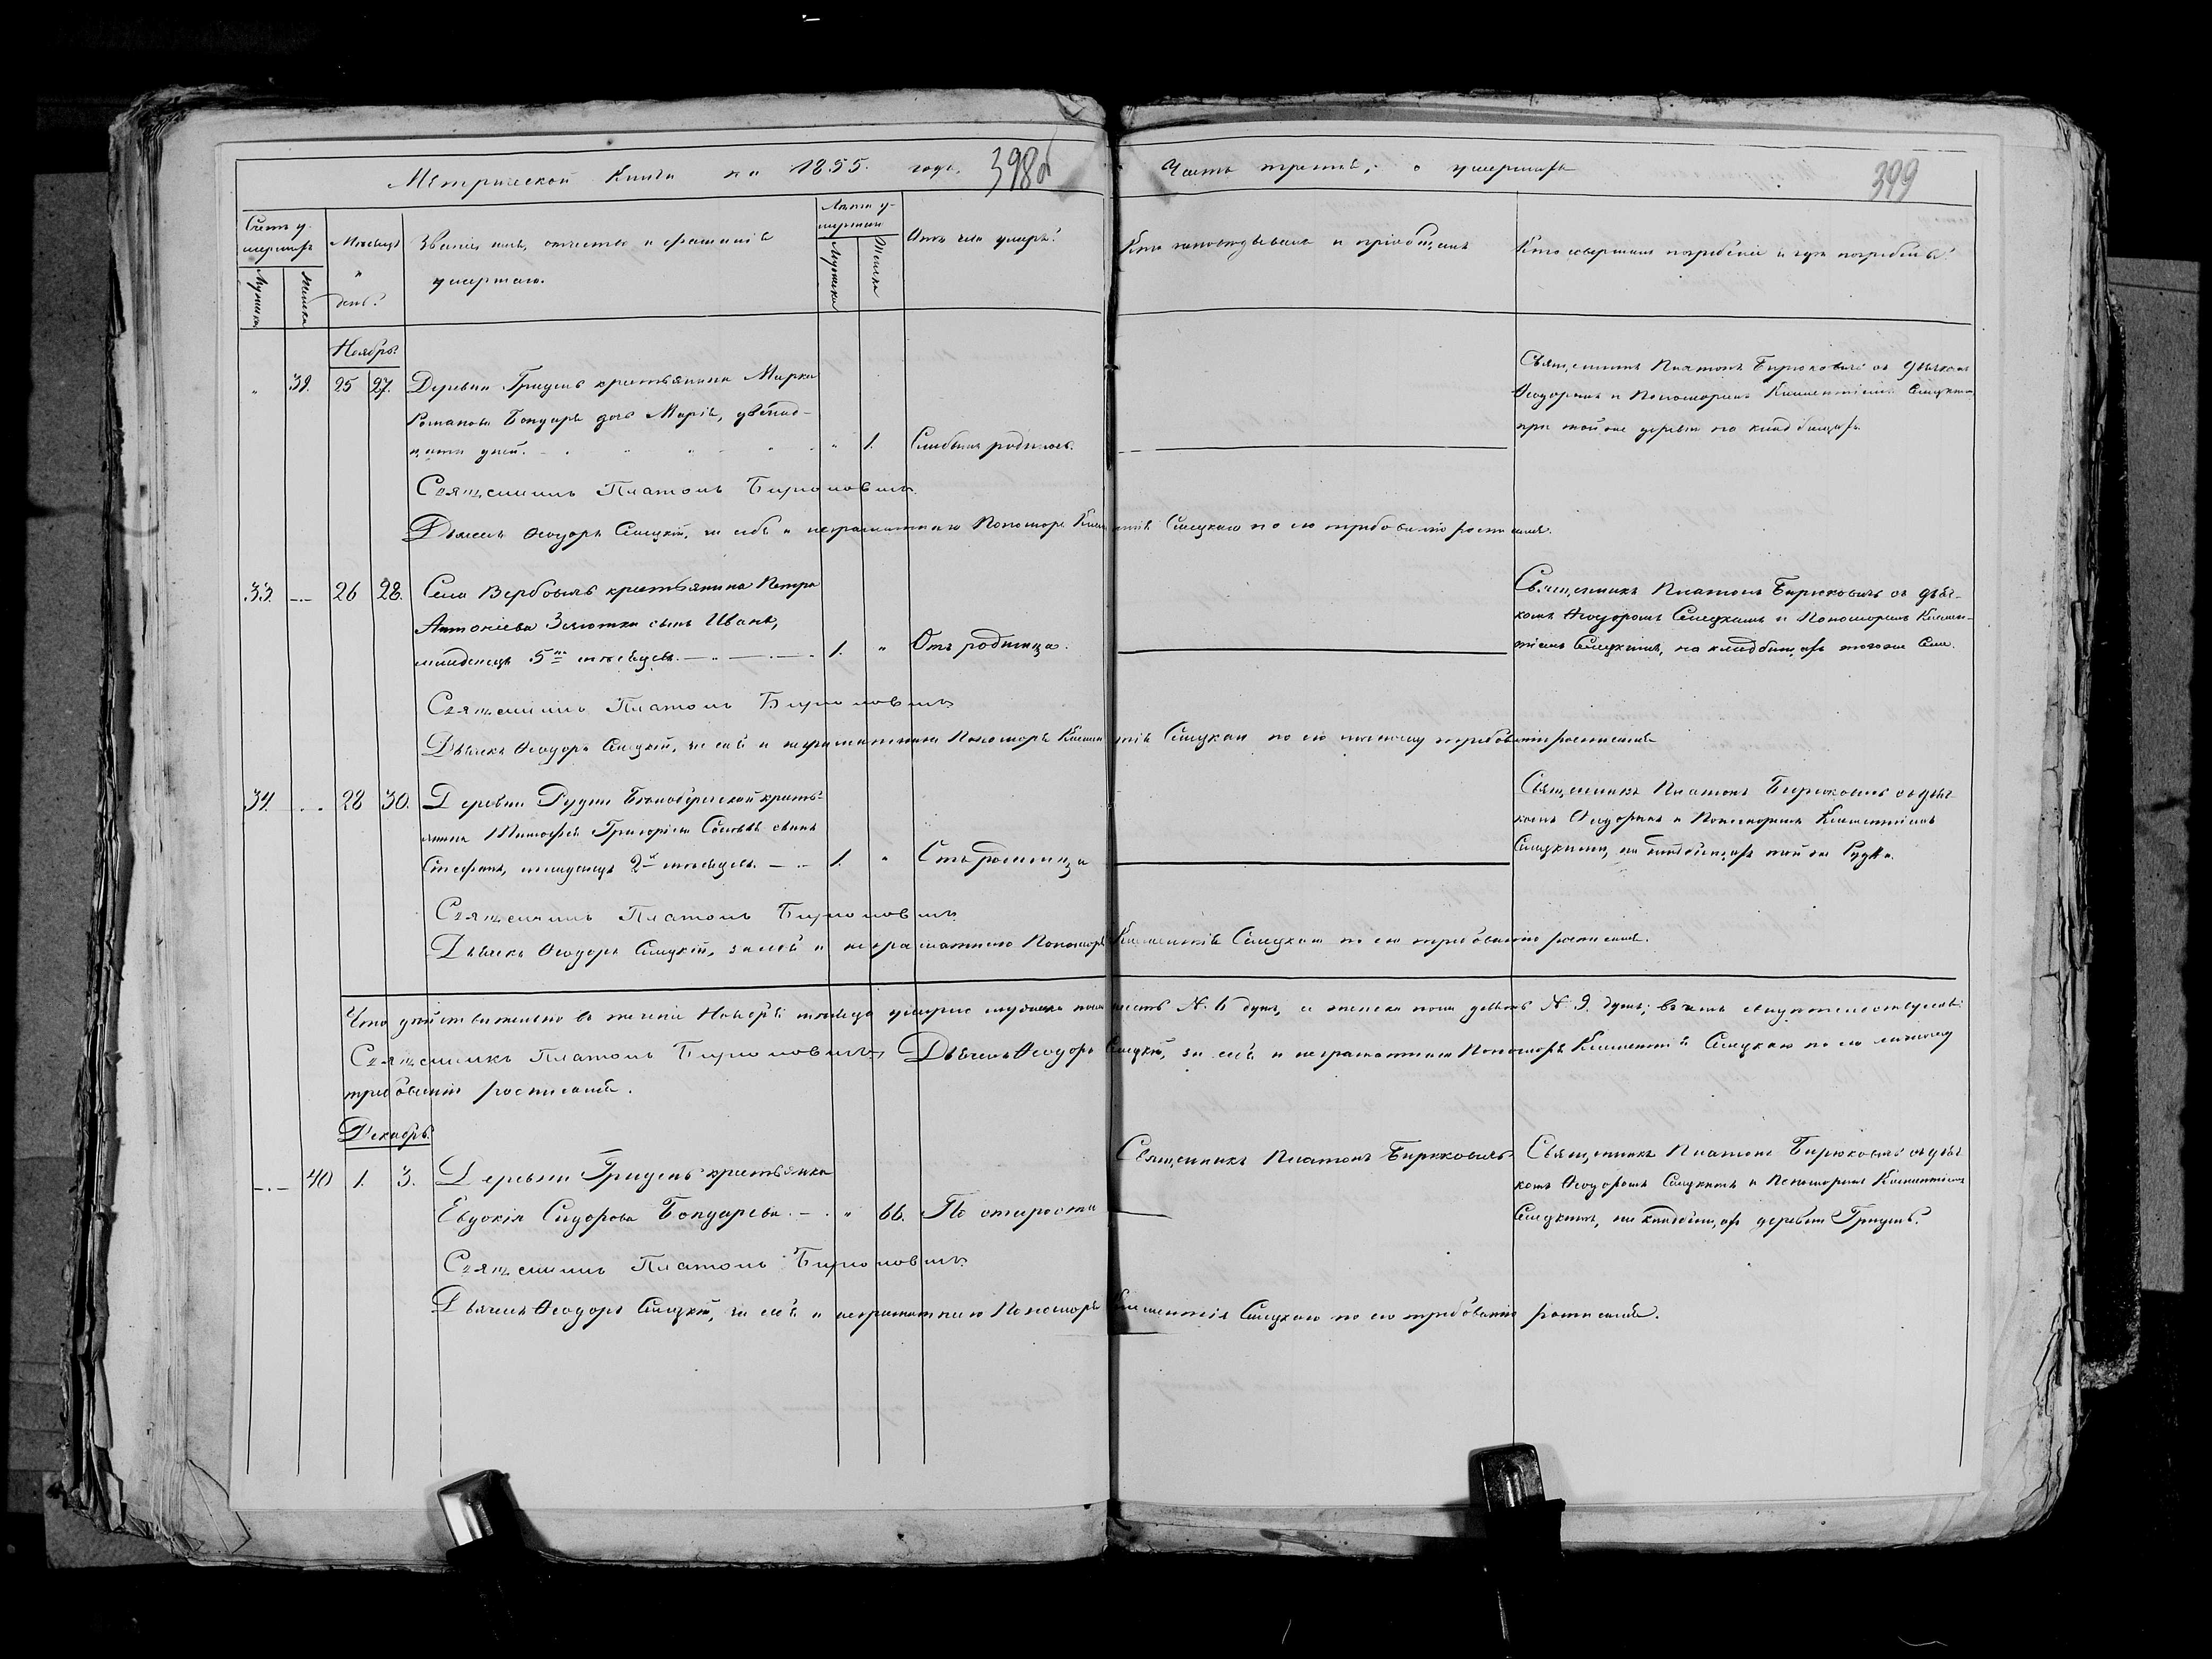 Метрической Книги на 1855. годъ. 398об
Часть третія, о умершихъ 399
Счетъ умершихъ
Мужеска
Женска
Мѣсяцъ и день.
Званіе имя, отчество и фамилія
умершаго.
Лѣта умершаго
Мужеска
Женска
Отъ чего умеръ?
Кто исповѣдывалъ и пріобщалъ
Кто совершалъ погребеніе и гдѣ погребены?
Ноябрь.
" 39. 25 27. Деревни Гридень крестьянина Марка
Романова Бондаря дочь Марія, двѣнад-
цати дней. " 1. Слабыя родилась.
Священникъ Платонъ Бирюковичъ съ дьячкомъ
Ѳеодоромъ и Пономаремъ Климентіемъ Слуцкими
при той же деревни на кладбищахъ
Священникъ Платонъ Бирюковичъ
Дьячекъ Ѳеодоръ Слуцкій, за себя и неграмотнаго Пономаря Климентія Слуцкаго по его требованію росписался.
33. 26 28. Села Вербовичъ крестьянина Петра
Антоніева сынъ Иванъ,
младенецъ 5ти мѣсяцевъ. 1. " Отъ родимца.
Священникъ Платонъ Бирюковичъ съ дья-
комъ Ѳеодоромъ Слуцкимъ и Пономаремъ Климен-
тіемъ Слуцкимъ, на кладбищахъ тогоже Села.
Священникъ Платонъ Бирюковичъ
Дьячекъ Ѳеодоръ Слуцкій, за себя и неграмотнаго Пономаря Климентія Слуцкаго по его личному требованію росписался
34. 28 30. Деревни Рудни кресть-
янина Тимофея Григоріева сынъ
Стефанъ, младенецъ 2хъ мѣсяцевъ. 1. " Отъ родимца
Священникъ Платонъ Бирюковичъ съ дьяч-
комъ Ѳеодоромъ и Пономаремъ Климентіемъ
Слуцкими, на кладбищахъ той же Рудни.
Священникъ Платонъ Бирюковичъ
Дьячекъ Ѳеодоръ Слуцкій, за себя и неграмотнаго Пономаря Климентія Слуцкаго по его требованію росписался.
Что дѣйствительно въ теченіе Ноября мѣсяца умерло мужеска пола шесть N. 6 душъ, а женска пола девять N 9. душъ; въ чемъ свидѣтельствуемъ:
Священникъ Платонъ Бирюковичъ, Дьячекъ Ѳеодоръ Слуцкій, за себя и неграмотнаго Пономаря Климентія Слуцкаго по его личному
требованію росписался.
Декабрь.
40 1. 3. Деревни Гридень крестьянка
Евдокія Сидорова Бондарева. " 66. По старости
Священникъ Платонъ Бирюковичъ
Священникъ Платонъ Бирюковичъ съ дьяч-
комъ Ѳеодоромъ Слуцкимъ и Пономаремъ Климентіемъ
Слуцкимъ, на кладбищахъ деревни Гридень.
Священникъ Платонъ Бирюковичъ
Дьячекъ Ѳеодоръ Слуцкій, за себя и неграмотнаго Пономаря Климентія Слуцкаго по его требованію росписался.